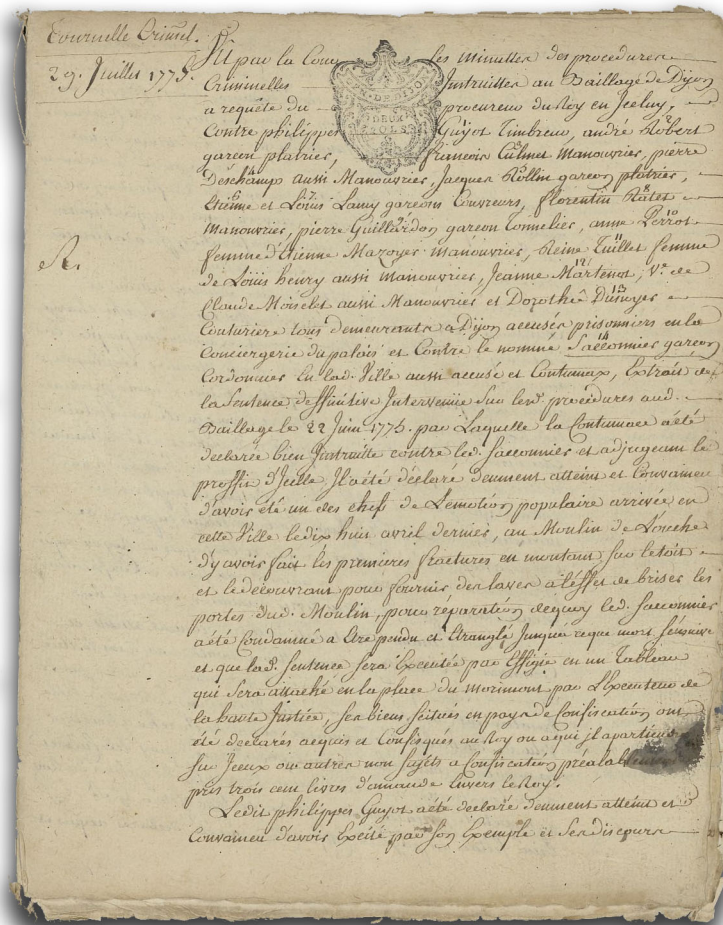 Tournelle Criminel.
29. Juillet 1775.
R.
Vu par la Cour les minuttes des procedures
Criminelles Instruittes au Bailliage de Dijon
a requête du procureur du Roy en Icelluy,
Contre philippes Guyot Timbreur, andré Robert
garçon platrier, francois Culmet Manouvrier, pierre
Deschamp aussi Manouvrier, Jacques Rollin garcon platrier,
Etienne et Loüis Lamy garcons Couvreurs, florentin Ratet
Manouvrier, pierre Guillardon garcon Tonnelier, anne Perrot
femme d'Etienne Mazoyer manouvrier, Reine Tuillet femme
de Loüis henry aussi manouvrier, Jeanne Martenot, Ve. de
Claude Moiselet aussi Manouvrier et Dorothée Dusuyer
Couturiere tous demeurants a Dijon accusés prisonniers en la
Conciergerie du palais et Contre le nommé Saccomier garçon
Cordonnier En lad. Ville aussi accusé et Contumax, Extrait de
la Sentence deffinitive Intervenüe Sur lesd. procédures aud.
Bailliage le 22 Juin 1775. par Laquelle la Contumace a été
declarée bien Instruitte contre led. Saccomier et adjugeant le
proffit d'Icelle Il a été déclaré deument atteint et Convaincu
d'avoir été un des chefs de L'emotion populaire arrivée en
cette Ville le dix huit avril dernier, au Moulin de Louche
d'y avoir fait les premieres fractures en montant Sur le toit
et le découvrant pour fournir des laves a l'effet de briser les
portes dud. Moulin, pour réparation dequoy led. Saccomier
a été Condamné a être pendu et étranglé Jusqu'a ce que mort s'ensuive
et que lad. Sentence Sera Executée par Effigie en un Tableau
qui Sera attaché en la place du morimont par L'Executeur de
la haute Justice, Ses biens, Scitués en pays de Confiscation ont
été declarés acquis et Confisqués au Roy ou a qui il apartiendra
Sur Iceux ou autres non Sujets a Confiscation préalablement
pris trois cent livres d'amande Envers le Roy.
Ledit philippes Guyot a été declaré deument atteint et
Convaincu d'avoir Excité par Son Exemple et Ses discours